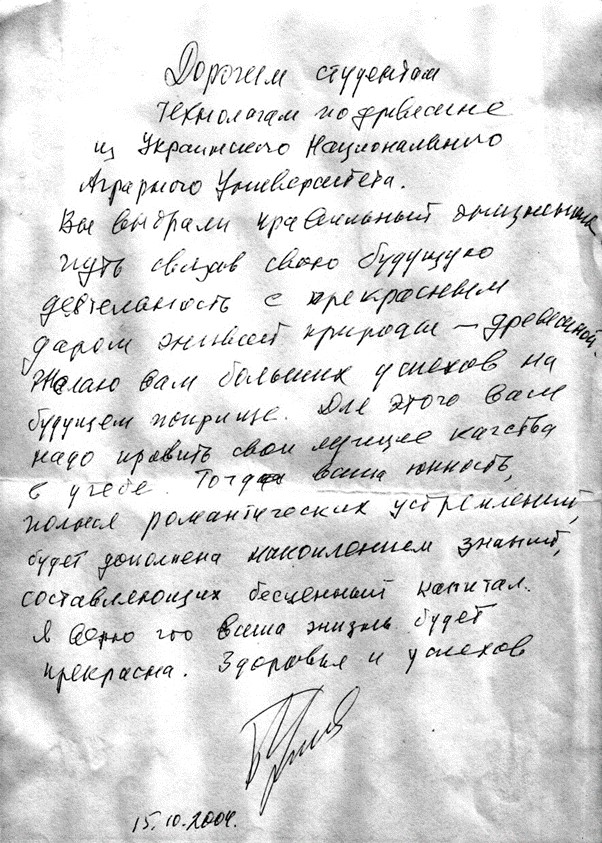 Дорогим студентам
технологам по древесине
из Украинского Национального
Аграрного Университета.
Вы выбрали правильный жизненный
путь связав свою будущую
деятельность с прекрасным
даром живой природы – древесиной.
Желаю вам больших успехов на
будущем поприще. Для этого вам
надо проявить свои лучшие качества
в учебе. Тогда ваша юность,
полная романтических устремлений,
будет дополнена накоплением знаний,
составляющих бесценный капитал.
Я верю что ваша жизнь будет
прекрасна. Здоровья и успехов
15.10.2004.